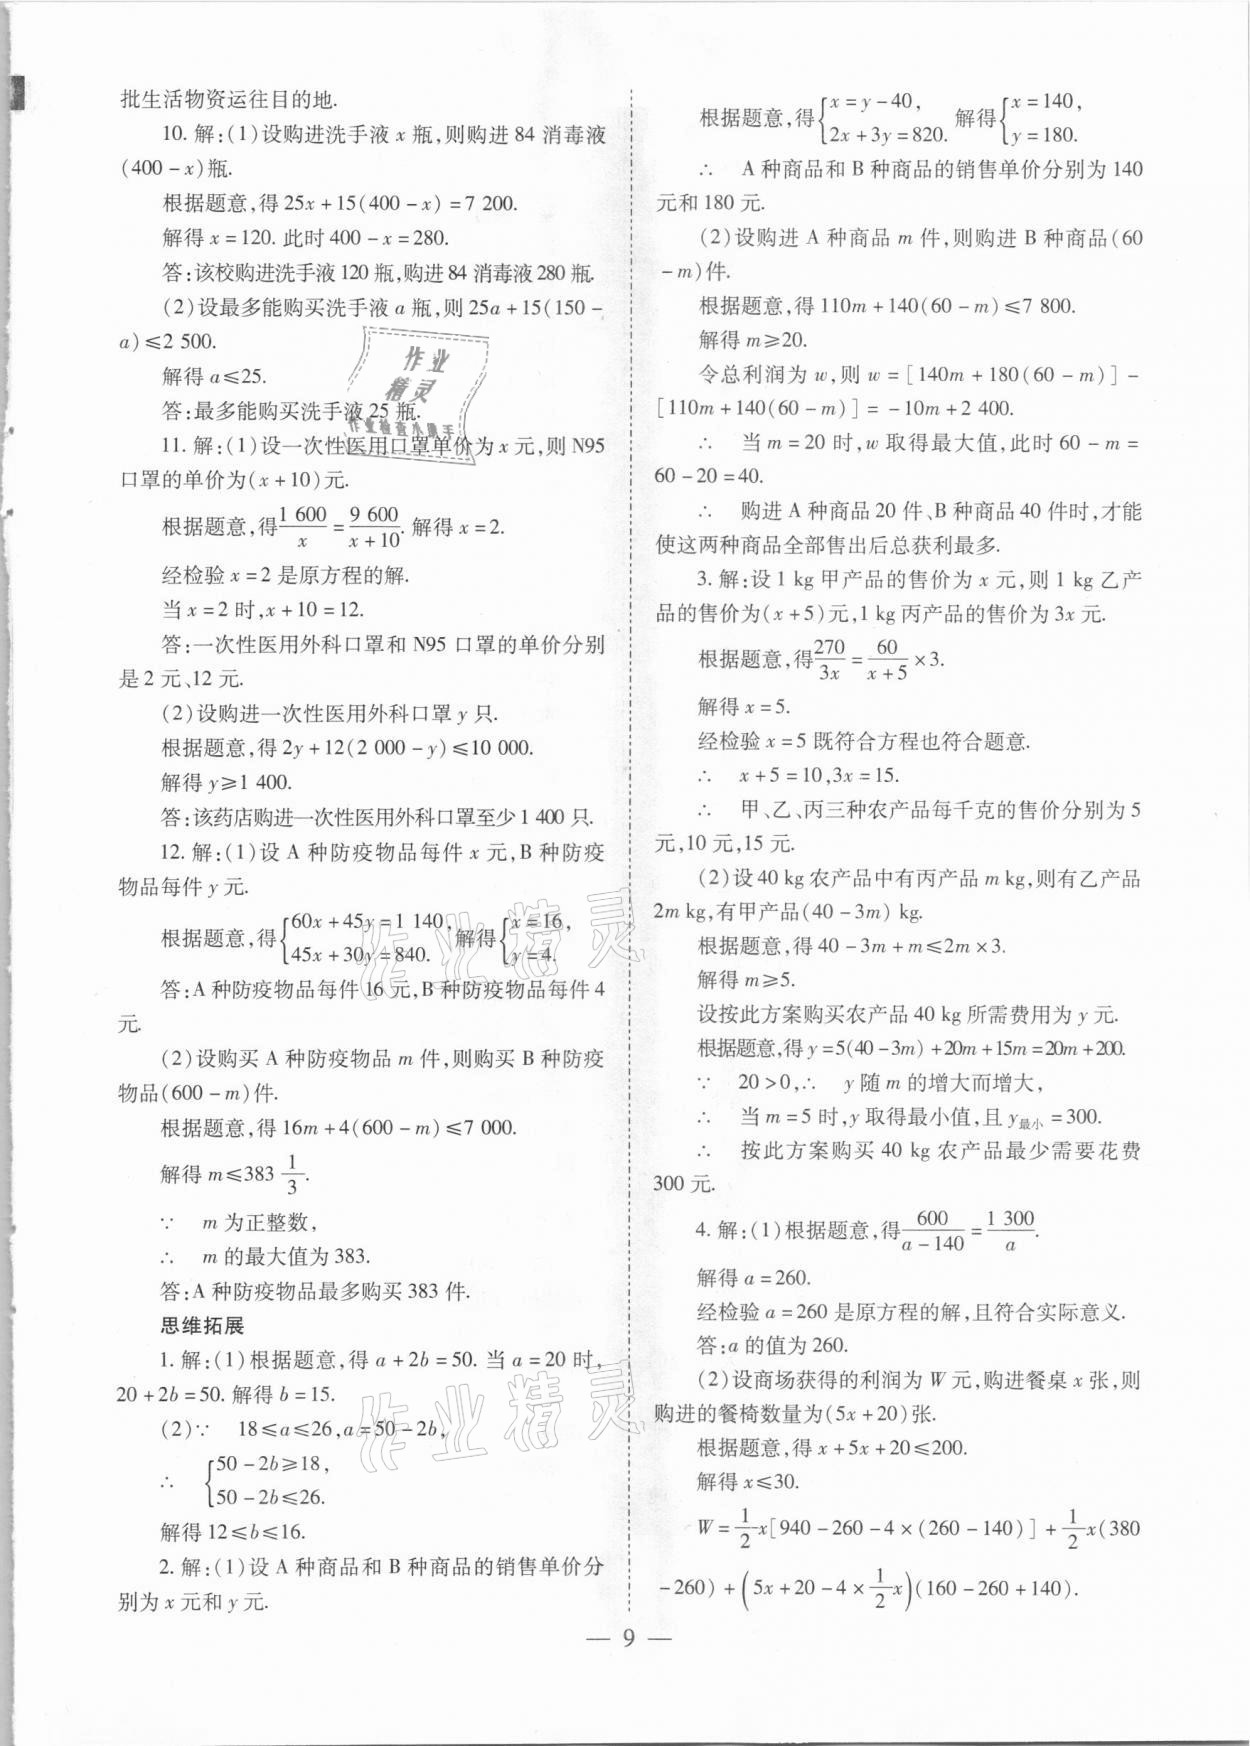 批生活物资运往目的地.
10. 解:(1)设购进洗手液 x 瓶,则购进 84 消毒液
(400-x)瓶.
根据题意,得 25x+15(400-x)=7 200.
解得 x=120. 此时 400-x=280.
答:该校购进洗手液 120 瓶,购进 84 消毒液 280 瓶.
(2)设最多能购买洗手液 a 瓶,则 25a+15(150-
a)≤2 500.
解得 a≤25.
答:最多能购买洗手液 25 瓶.
11. 解:(1)设一次性医用口罩单价为 x 元,则 N95
口罩的单价为(x+10)元.
根据题意,得 1 600/x = 9 600/(x+10). 解得 x=2.
经检验 x=2 是原方程的解.
当 x=2 时,x+10=12.
答:一次性医用外科口罩和 N95 口罩的单价分别
是 2 元、12 元.
(2)设购进一次性医用外科口罩 y 只.
根据题意,得 2y+12(2 000-y)≤10 000.
解得 y≥1 400.
答:该药店购进一次性医用外科口罩至少 1 400 只.
12. 解:(1)设 A 种防疫物品每件 x 元,B 种防疫
物品每件 y 元.
根据题意,得{60x+45y=1 140, 45x+30y=840. 解得{x=16, y=4.
答:A 种防疫物品每件 16 元,B 种防疫物品每件 4
元.
(2)设购买 A 种防疫物品 m 件,则购买 B 种防疫
物品(600-m)件.
根据题意,得 16m+4(600-m)≤7 000.
解得 m≤383 1/3.
∵ m 为正整数,
∴ m 的最大值为 383.
答:A 种防疫物品最多购买 383 件.
思维拓展
1. 解:(1)根据题意,得 a+2b=50. 当 a=20 时,
20+2b=50. 解得 b=15.
(2)∵ 18≤a≤26,a=50-2b,
∴ {50-2b≥18, 50-2b≤26.
解得 12≤b≤16.
2. 解:(1)设 A 种商品和 B 种商品的销售单价分
别为 x 元和 y 元.
根据题意,得{x=y-40, 2x+3y=820. 解得{x=140, y=180.
∴ A 种商品和 B 种商品的销售单价分别为 140
元和 180 元.
(2)设购进 A 种商品 m 件,则购进 B 种商品(60
-m)件.
根据题意,得 110m+140(60-m)≤7 800.
解得 m≥20.
令总利润为 w,则 w=[140m+180(60-m)]-
[110m+140(60-m)]=-10m+2 400.
∴ 当 m=20 时,w 取得最大值,此时 60-m=
60-20=40.
∴ 购进 A 种商品 20 件、B 种商品 40 件时,才能
使这两种商品全部售出后总获利最多.
3. 解:设 1 kg 甲产品的售价为 x 元,则 1 kg 乙产
品的售价为(x+5)元,1 kg 丙产品的售价为 3x 元.
根据题意,得 270/3x = 60/(x+5) ×3.
解得 x=5.
经检验 x=5 既符合方程也符合题意.
∴ x+5=10,3x=15.
∴ 甲、乙、丙三种农产品每千克的售价分别为 5
元,10 元,15 元.
(2)设 40 kg 农产品中有丙产品 m kg,则有乙产品
2m kg,有甲产品(40-3m) kg.
根据题意,得 40-3m+m≤2m×3.
解得 m≥5.
设按此方案购买农产品 40 kg 所需费用为 y 元.
根据题意,得 y=5(40-3m)+20m+15m=20m+200.
∵ 20>0,∴ y 随 m 的增大而增大,
∴ 当 m=5 时,y 取得最小值,且 y最小=300.
∴ 按此方案购买 40 kg 农产品最少需要花费
300 元.
4. 解:(1)根据题意,得 600/(a-140) = 1 300/a.
解得 a=260.
经检验 a=260 是原方程的解,且符合实际意义.
答:a 的值为 260.
(2)设商场获得的利润为 W 元,购进餐桌 x 张,则
购进的餐椅数量为(5x+20)张.
根据题意,得 x+5x+20≤200.
解得 x≤30.
W=1/2 x[940-260-4×(260-140)]+1/2 x(380
-260)+(5x+20-4×1/2 x)(160-260+140).
— 9 —
作业
精灵
作业检查小助手
作业精灵
作业精灵